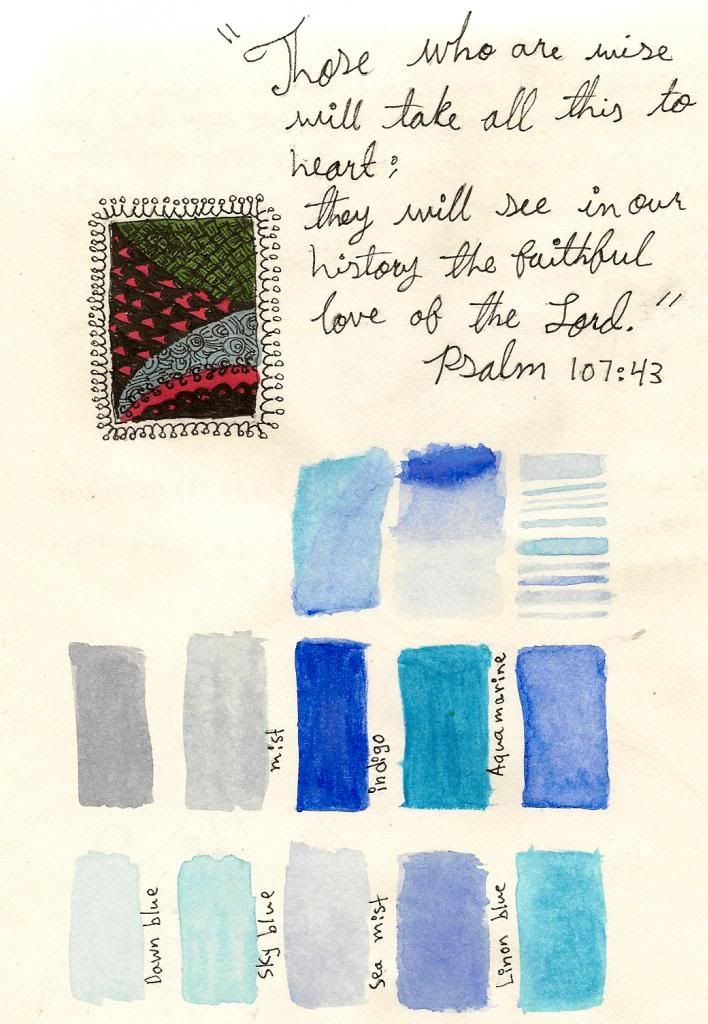 "Those who are wise
will take all this to
heart;
they will see in our
history the faithful
love of the Lord."
Psalm 107:43
mist
indigo
Aquamarine
Dawn blue
Sky blue
Sea mist
Linon blue